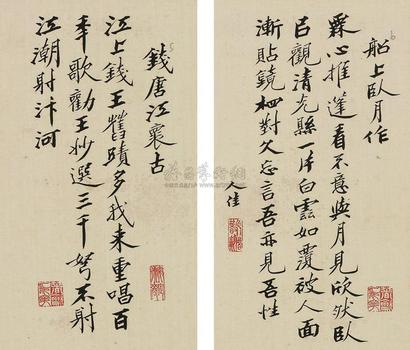 船上臥月作
粟心推篷看不意與月見欣然臥
占觀清光縣一片白雲如覆被人面
漸貼鏡相對久忘言吾亦見吾性
人佳
錢唐江襄古
江上錢王舊蹟多我来重唱百
年歌勸王妙選三千弩不射
江潮射汴河